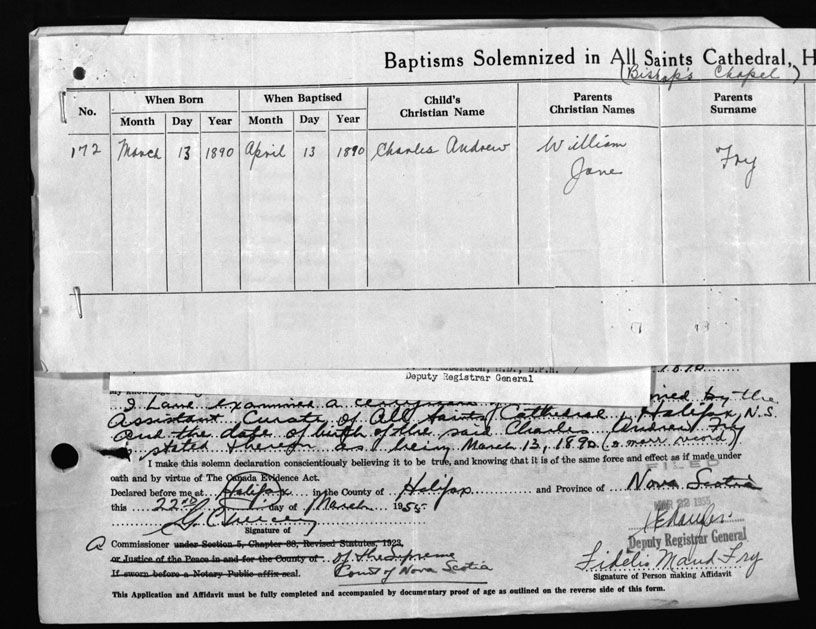 Baptisms Solemnized in All Saints Cathedral, H
(Bishop's Chapel)
No. When Born When Baptised Child's Christian Name Parents Christian Names Parents Surname
Month Day Year Month Day Year
172 March 13 1890 April 13 1890 Charles Andrew William Fry
Jane
Deputy Registrar General
I have examined a by the
Assistant Curate of All Saints Cathedral, Halifax, N.S.
and the date of birth of the said Charles Andrew Fry
stated thereon as being March 13, 1890
I make this solemn declaration conscientiously believing it to be true, and knowing that it is of the same force and effect as if made under
oath and by virtue of The Canada Evidence Act.
FILED
Declared before me at Halifax in the County of Halifax and Province of Nova Scotia
this 22nd day of March 1955
MAR 22 1955
Signature of
Deputy Registrar General
A Commissioner under Section 5, Chapter 88, Revised Statutes, 1923, of the Supreme
or Justice of the Peace in and for the County of Court of Nova Scotia
If sworn before a Notary Public affix seal.
Fidelis Maud Fry
Signature of Person making Affidavit
This Application and Affidavit must be fully completed and accompanied by documentary proof of age as outlined on the reverse side of this form.